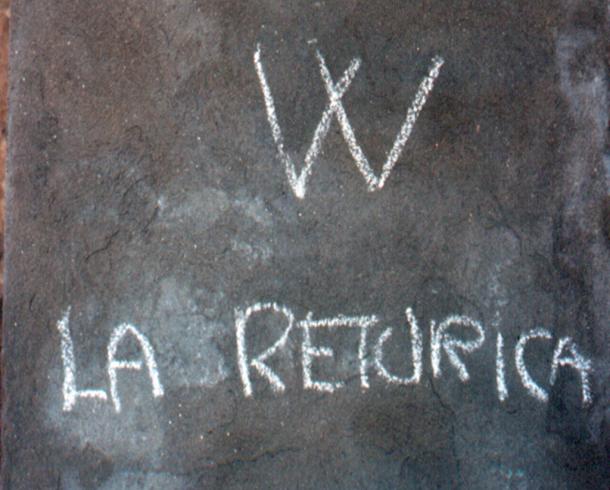 W
LA RETURICA